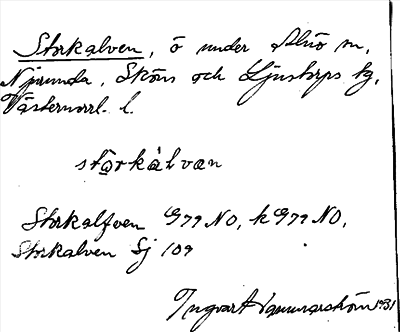 Storkalven, ö under Alnö m,
Njurunda, Sköns och Ljustorps tg,
Västernorrl. l.
storkalvan
Storkalfven G77 NO, k G77 NO,
Storkalven Sj 109
Ingvart 1931